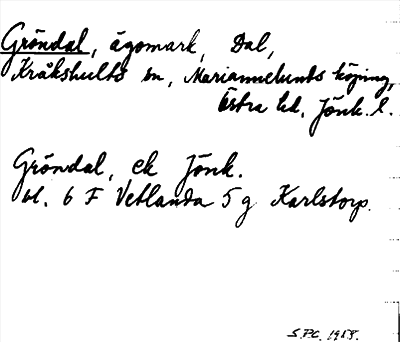 Gröndal, ägomark, Dal,
Kråkshults sn, Mariannelunds köping,
Östra hd, Jönk. l.
Gröndal, ek Jönk.
bl. 6 F Vetlanda 5 g Karlstorp.
S.P.C. 1958.